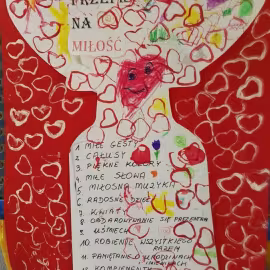 PRZEPIS
NA
MIŁOŚĆ
1. MIŁE GESTY
2. CAŁUSY
3. PIĘKNE KOLORY
4. MIŁE SŁOWA
5. MIŁOSNA MUZYKA
6. RADOSNE DZIECI
7. KWIATY
8. OBDAROWYWANIE SIĘ PREZENTAMI
9. UŚMIECH
10 ROBIENIE WSZYSTKIEGO
RAZEM
11. PAMIĘTANIE O URODZINACH
IMIENINACH
12. KOMPLEMENTY